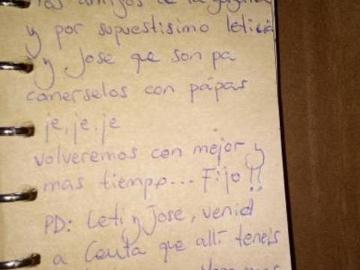 los amigos de la
y por supuestisimo leticia
y Jose que son pa
comerselos con papas
je, je. je
volveremos con mejor y
mas tiempo... Fijo!!
PD: Leti y Jose, venid
a Ceuta que allí teneis